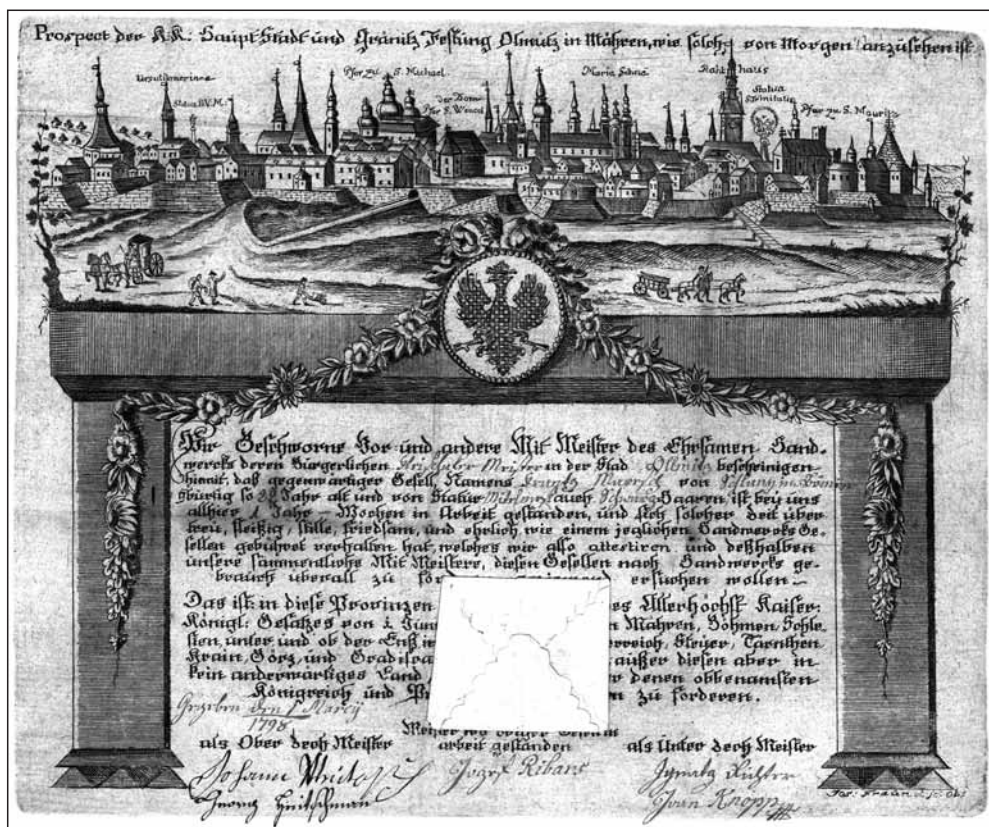 Prospect der K.K. Haupt Stadt und Gränitz Festung Olmutz in Mähren, wie solche von Morgen anzusehen ist
Ursulinerinen
Statua B.V.M.
Pfar zu S. Michael
der Dom
Pfar S. Wencel
Maria Schne
Raht haus
Statua
S. Trinitatis
Pfar zu S. Mauritz
Wir Geschworne Vor und andere Mit Meister des Ehrsamen Hand-
wercks deren Bürgerlichen Meister in der Stad Ollmütz bescheinigen
hiemit, daß gegenwärtiger Gesell, Namens von
gbürtig so Jahr alt und von Statur auch Haaren, ist bey uns
allhier 1 Jahr – Wochen in Arbeit gestanden, und sich solcher Zeit über
treu, fleißig, stille, friedsam, und ehrlich wie einem jeglichen Handwercks Ge-
sellen gebühret verhalten hat, welches wir also attestiren und deßhalben
unsere sammentliche Mit Meistere, diesen Gesellen nach Handwercks ge-
brauch überall zu ersuchen wollen
Das ist in diese Provinzen es Allerhöchst Kaiser:
Königl: Gesatzes von n Mähren, Böhmen, Schle-
sien, unter und ob der Enß, erreich, Steyer, Cärnthen
Krain, Görz, und Gradisca außer diesen aber in
kein anderwärtiges Land r denen obbenamsten
Königreich und n zu forderen.
Gegeben den Marcÿ
1798
als Ober Zech Meister
arbeit gestanden
als Unter Zech Meister
Johann
Jozef Ribarz
Ignatz Richter
Georg
Knopp
Jos: Fraün